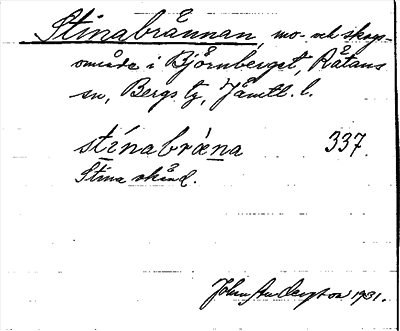 Stinabrännan mo- och skogs-
område i Björnberget, Rätans
sn, Bergs tg, Jämtl. l.
stinabræna 337.
Stina skänd.
John 1931.